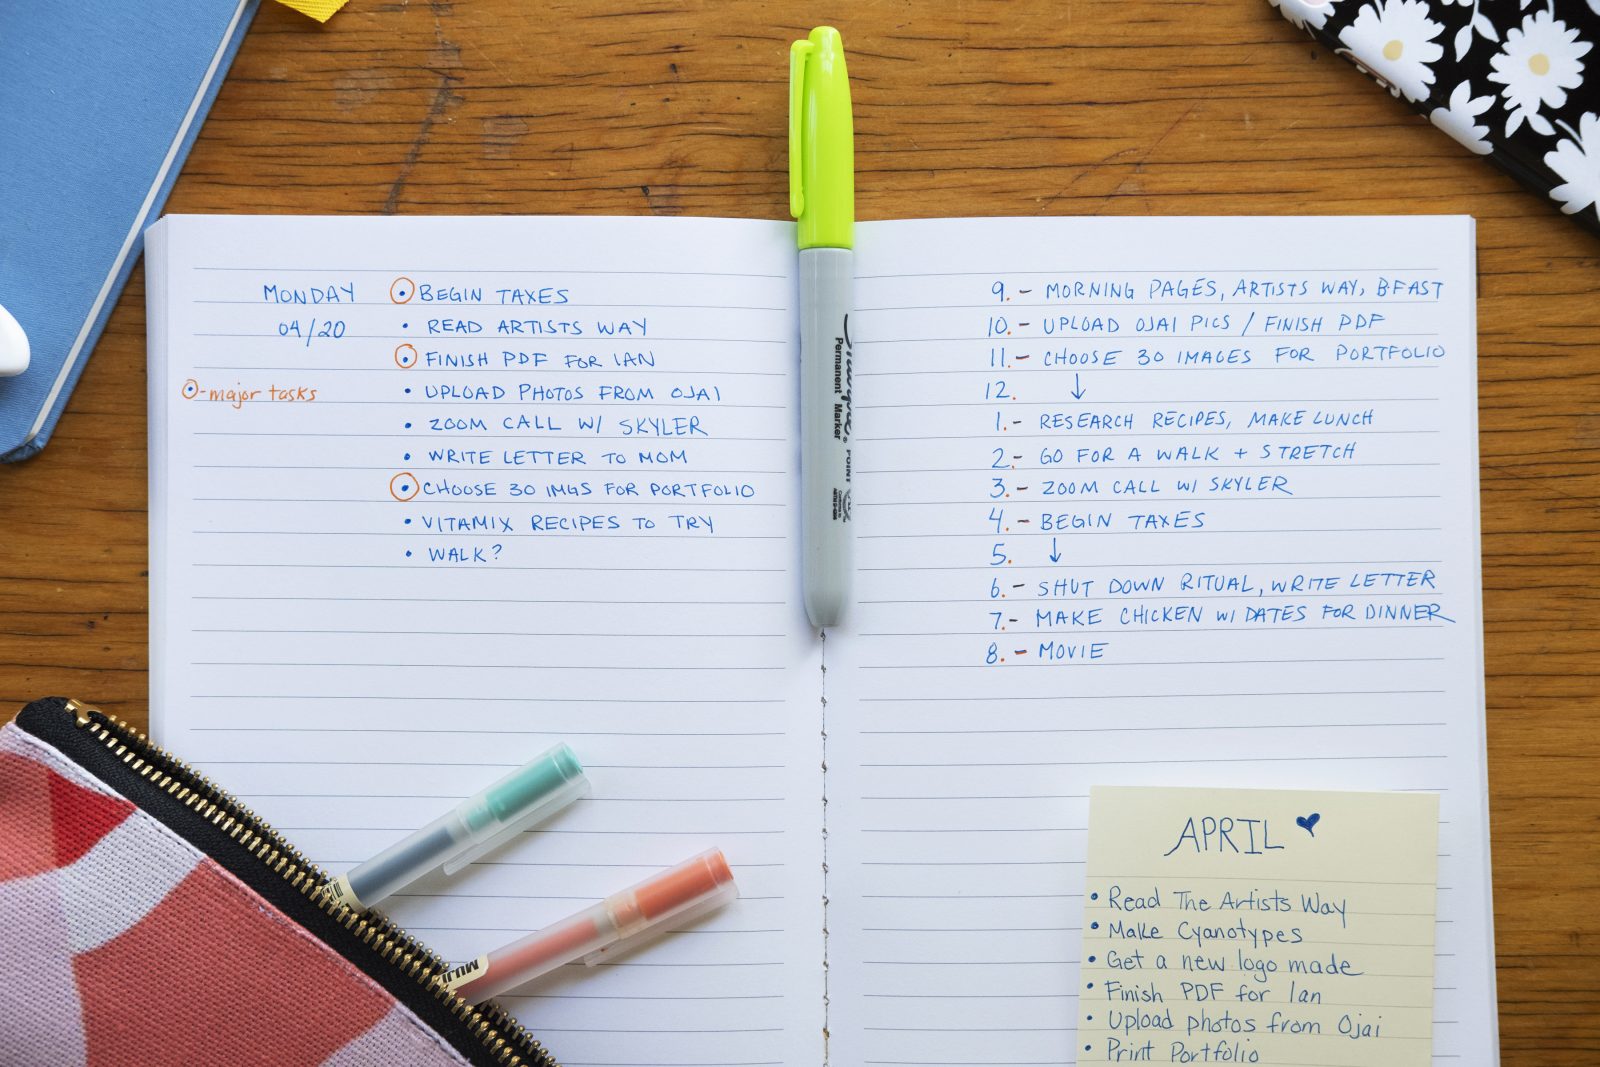 MONDAY
04/20
-major tasks
BEGIN TAXES
• READ ARTISTS WAY
FINISH PDF FOR IAN
• UPLOAD PHOTOS FROM OJAI
• ZOOM CALL W/ SKYLER
• WRITE LETTER TO MOM
CHOOSE 30 IMGS FOR PORTFOLIO
• VITAMIX RECIPES TO TRY
• WALK?
Sharpie®
Permanent Marker
POINT
9. - MORNING PAGES, ARTISTS WAY, BFAST
10. - UPLOAD OJAI PICS / FINISH PDF
11. - CHOOSE 30 IMAGES FOR PORTFOLIO
12. ↓
1. - RESEARCH RECIPES, MAKE LUNCH
2. - GO FOR A WALK + STRETCH
3. - ZOOM CALL W/ SKYLER
4. - BEGIN TAXES
5. ↓
6. - SHUT DOWN RITUAL, WRITE LETTER
7. - MAKE CHICKEN W/ DATES FOR DINNER
8. - MOVIE
APRIL ♥
• Read The Artists Way
• Make Cyanotypes
• Get a new logo made
• Finish PDF for Ian
• Upload photos from Ojai
• Print Portfolio
MUJI